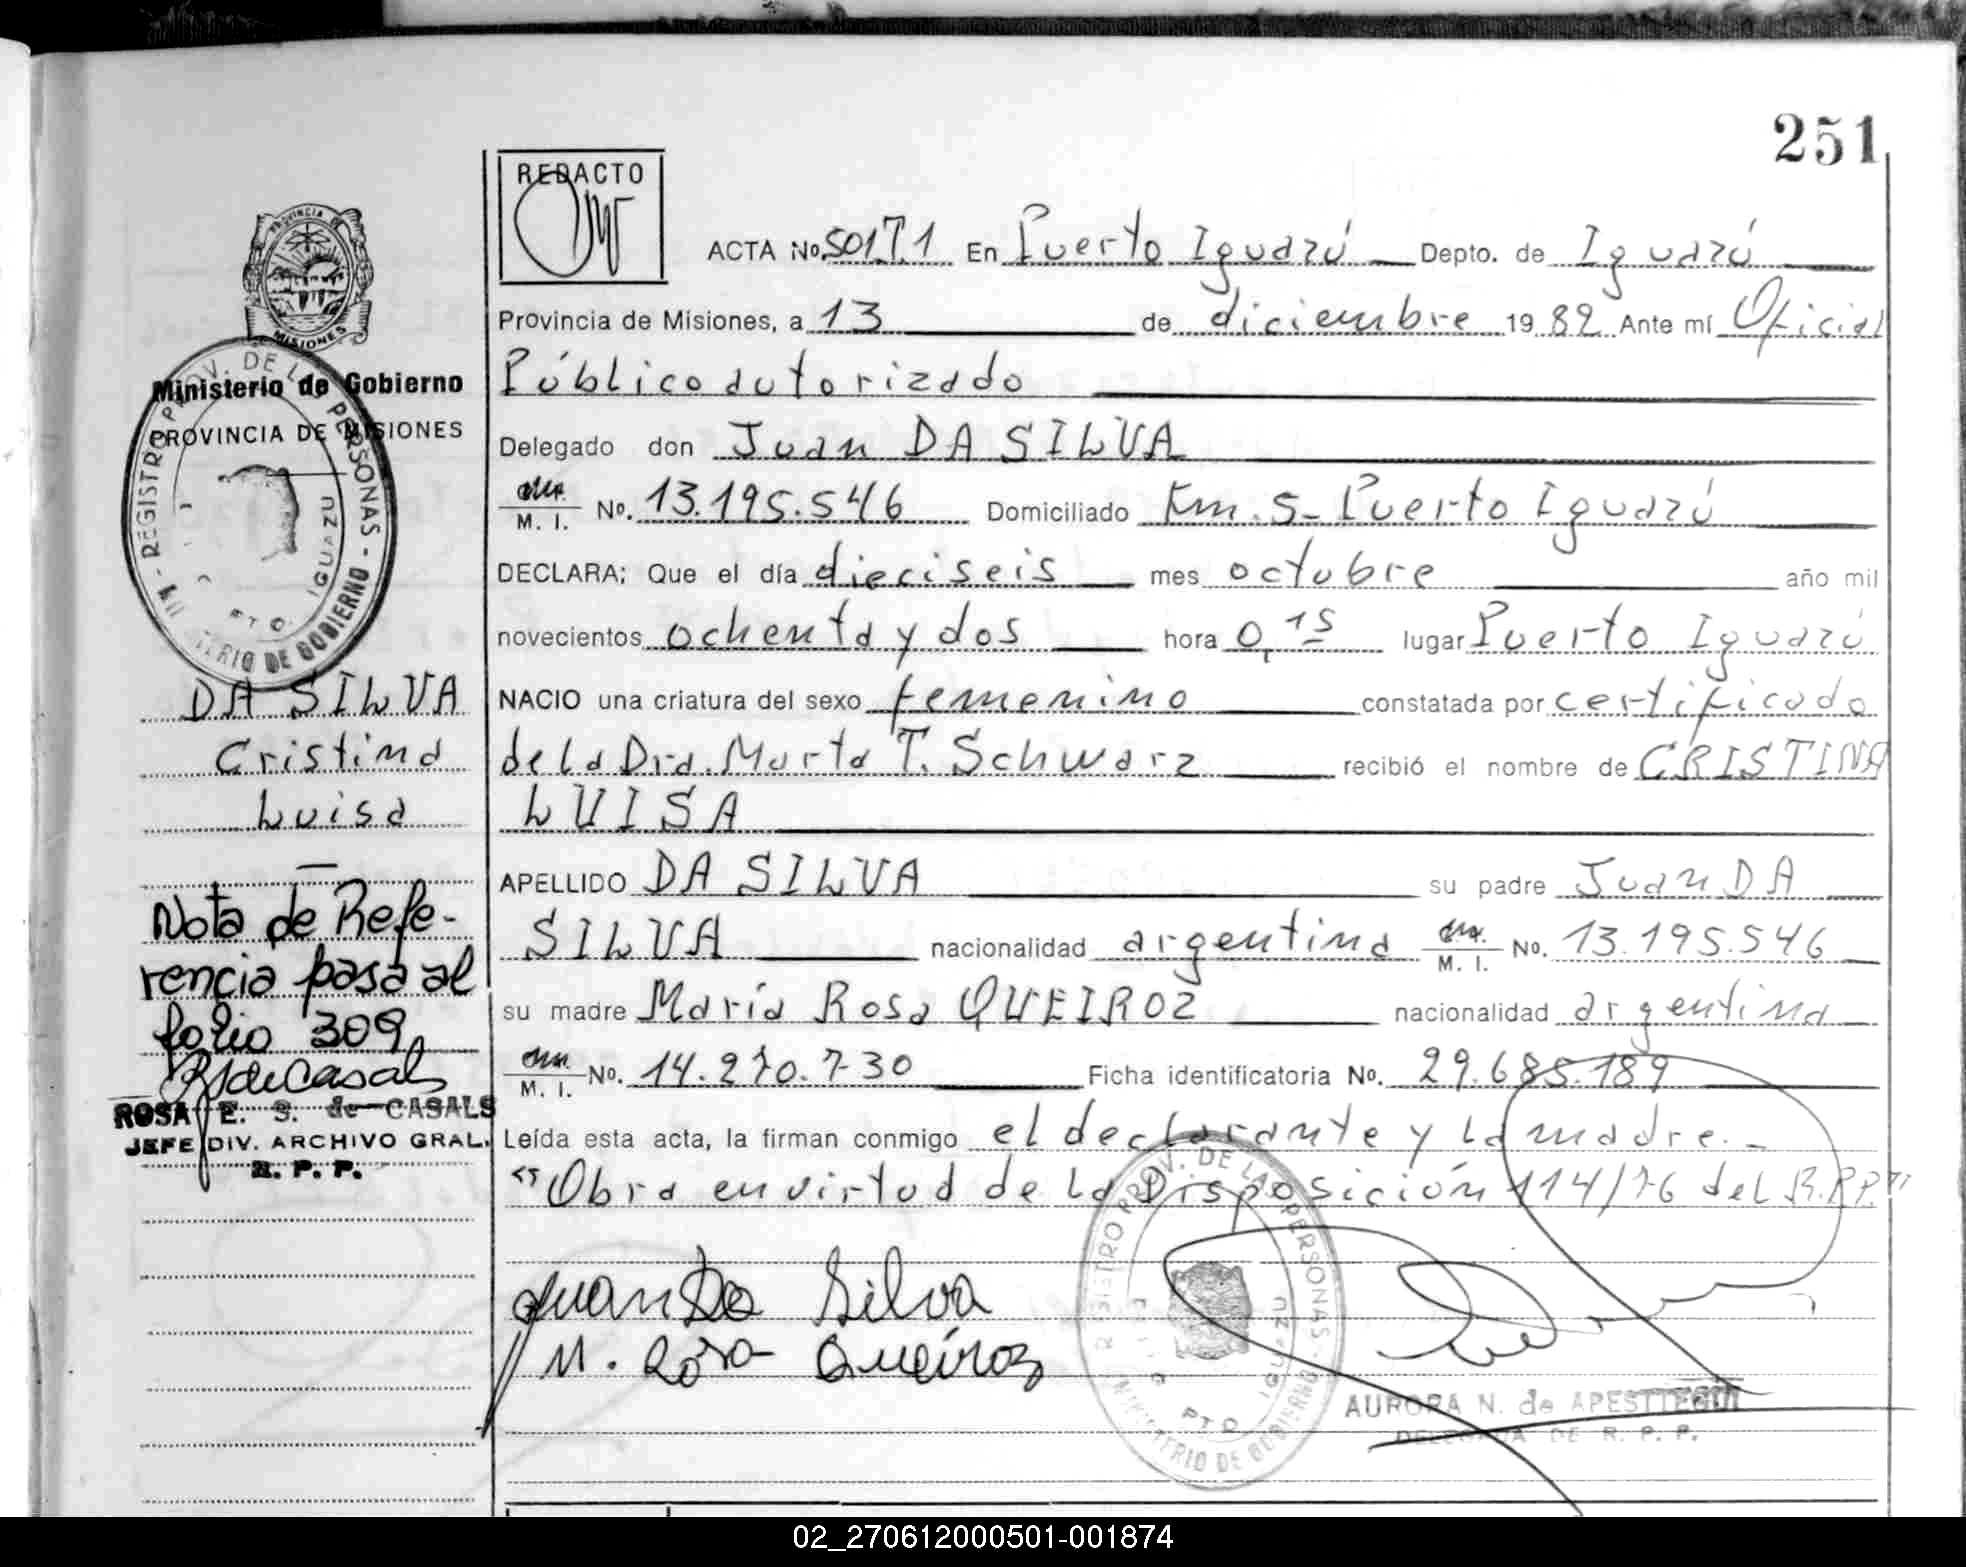 251
REDACTO
ACTA No. 501T.1 En Puerto Iguazú Depto. de Iguazú
Provincia de Misiones, a 13 de diciembre 1982 Ante mí Oficial
Público autorizado
Delegado don Juan DA SILVA
M. I. No. 13.195.546 Domiciliado Km. 5- Puerto Iguazú
DECLARA: Que el día dieciseis mes octubre año mil
novecientos ochenta y dos hora 0,15 lugar Puerto Iguazú
NACIO una criatura del sexo femenino constatada por certificado
de la Dra. Marta T. Schwarz recibió el nombre de CRISTINA
LUISA
APELLIDO DA SILVA su padre Juan DA
SILVA nacionalidad argentina M. I. No. 13.195.546
su madre María Rosa QUEIROZ nacionalidad argentina
M. I. No. 14.270.730 Ficha identificatoria No. 29.685.189
Leída esta acta, la firman conmigo el declarante y la madre.-
"Obra en virtud de la Disposición 114/76 del R.P.P."
Juan Da Silva
M. Rosa Queiroz
REGISTRO PROV. DE LAS PERSONAS - MINISTERIO DE GOBIERNO -
PTO. IGUAZU
AURORA N. de APESTTEGUI
DELEGADA DE R. P. P.
PROVINCIA DE
MISIONES
Ministerio de Gobierno
PROVINCIA DE MISIONES
REGISTRO PROV. DE LAS PERSONAS - MINISTERIO DE GOBIERNO -
PTO. IGUAZU
DA SILVA
Cristina
Luisa
Nota de Refe-
rencia pasa al
folio 309
RSdeCasals
ROSA E. S. de CASALS
JEFE DIV. ARCHIVO GRAL.
R. P. P.
02_270612000501-001874